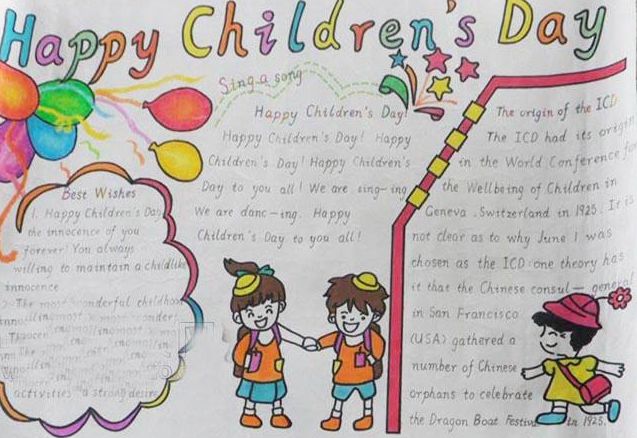 Happy Children's Day
Sing a song
Happy Children's Day!
Happy Children's Day! Happy
Children's Day! Happy Children's
Day to you all! We are sing-ing
We are danc-ing. Happy
Children's Day to you all!
Best Wishes
1. Happy Children's Day
the innocence of you
forever! You always
willing to maintain a childlike
innocence
2. The most wonderful childhood
activities a strong desire
The origin of the ICD
The ICD had its origin
in the World Conference for
the Wellbeing of Children in
Geneva, Switzerland in 1925. It is
not clear as to why June 1 was
chosen as the ICD: one theory has
it that the Chinese consul- general
in San Francisco
(USA) gathered a
number of Chinese
orphans to celebrate
the Dragon Boat Festiv in 1925.